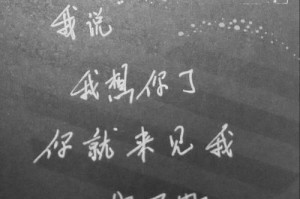 我说
我想你了
你就来见我